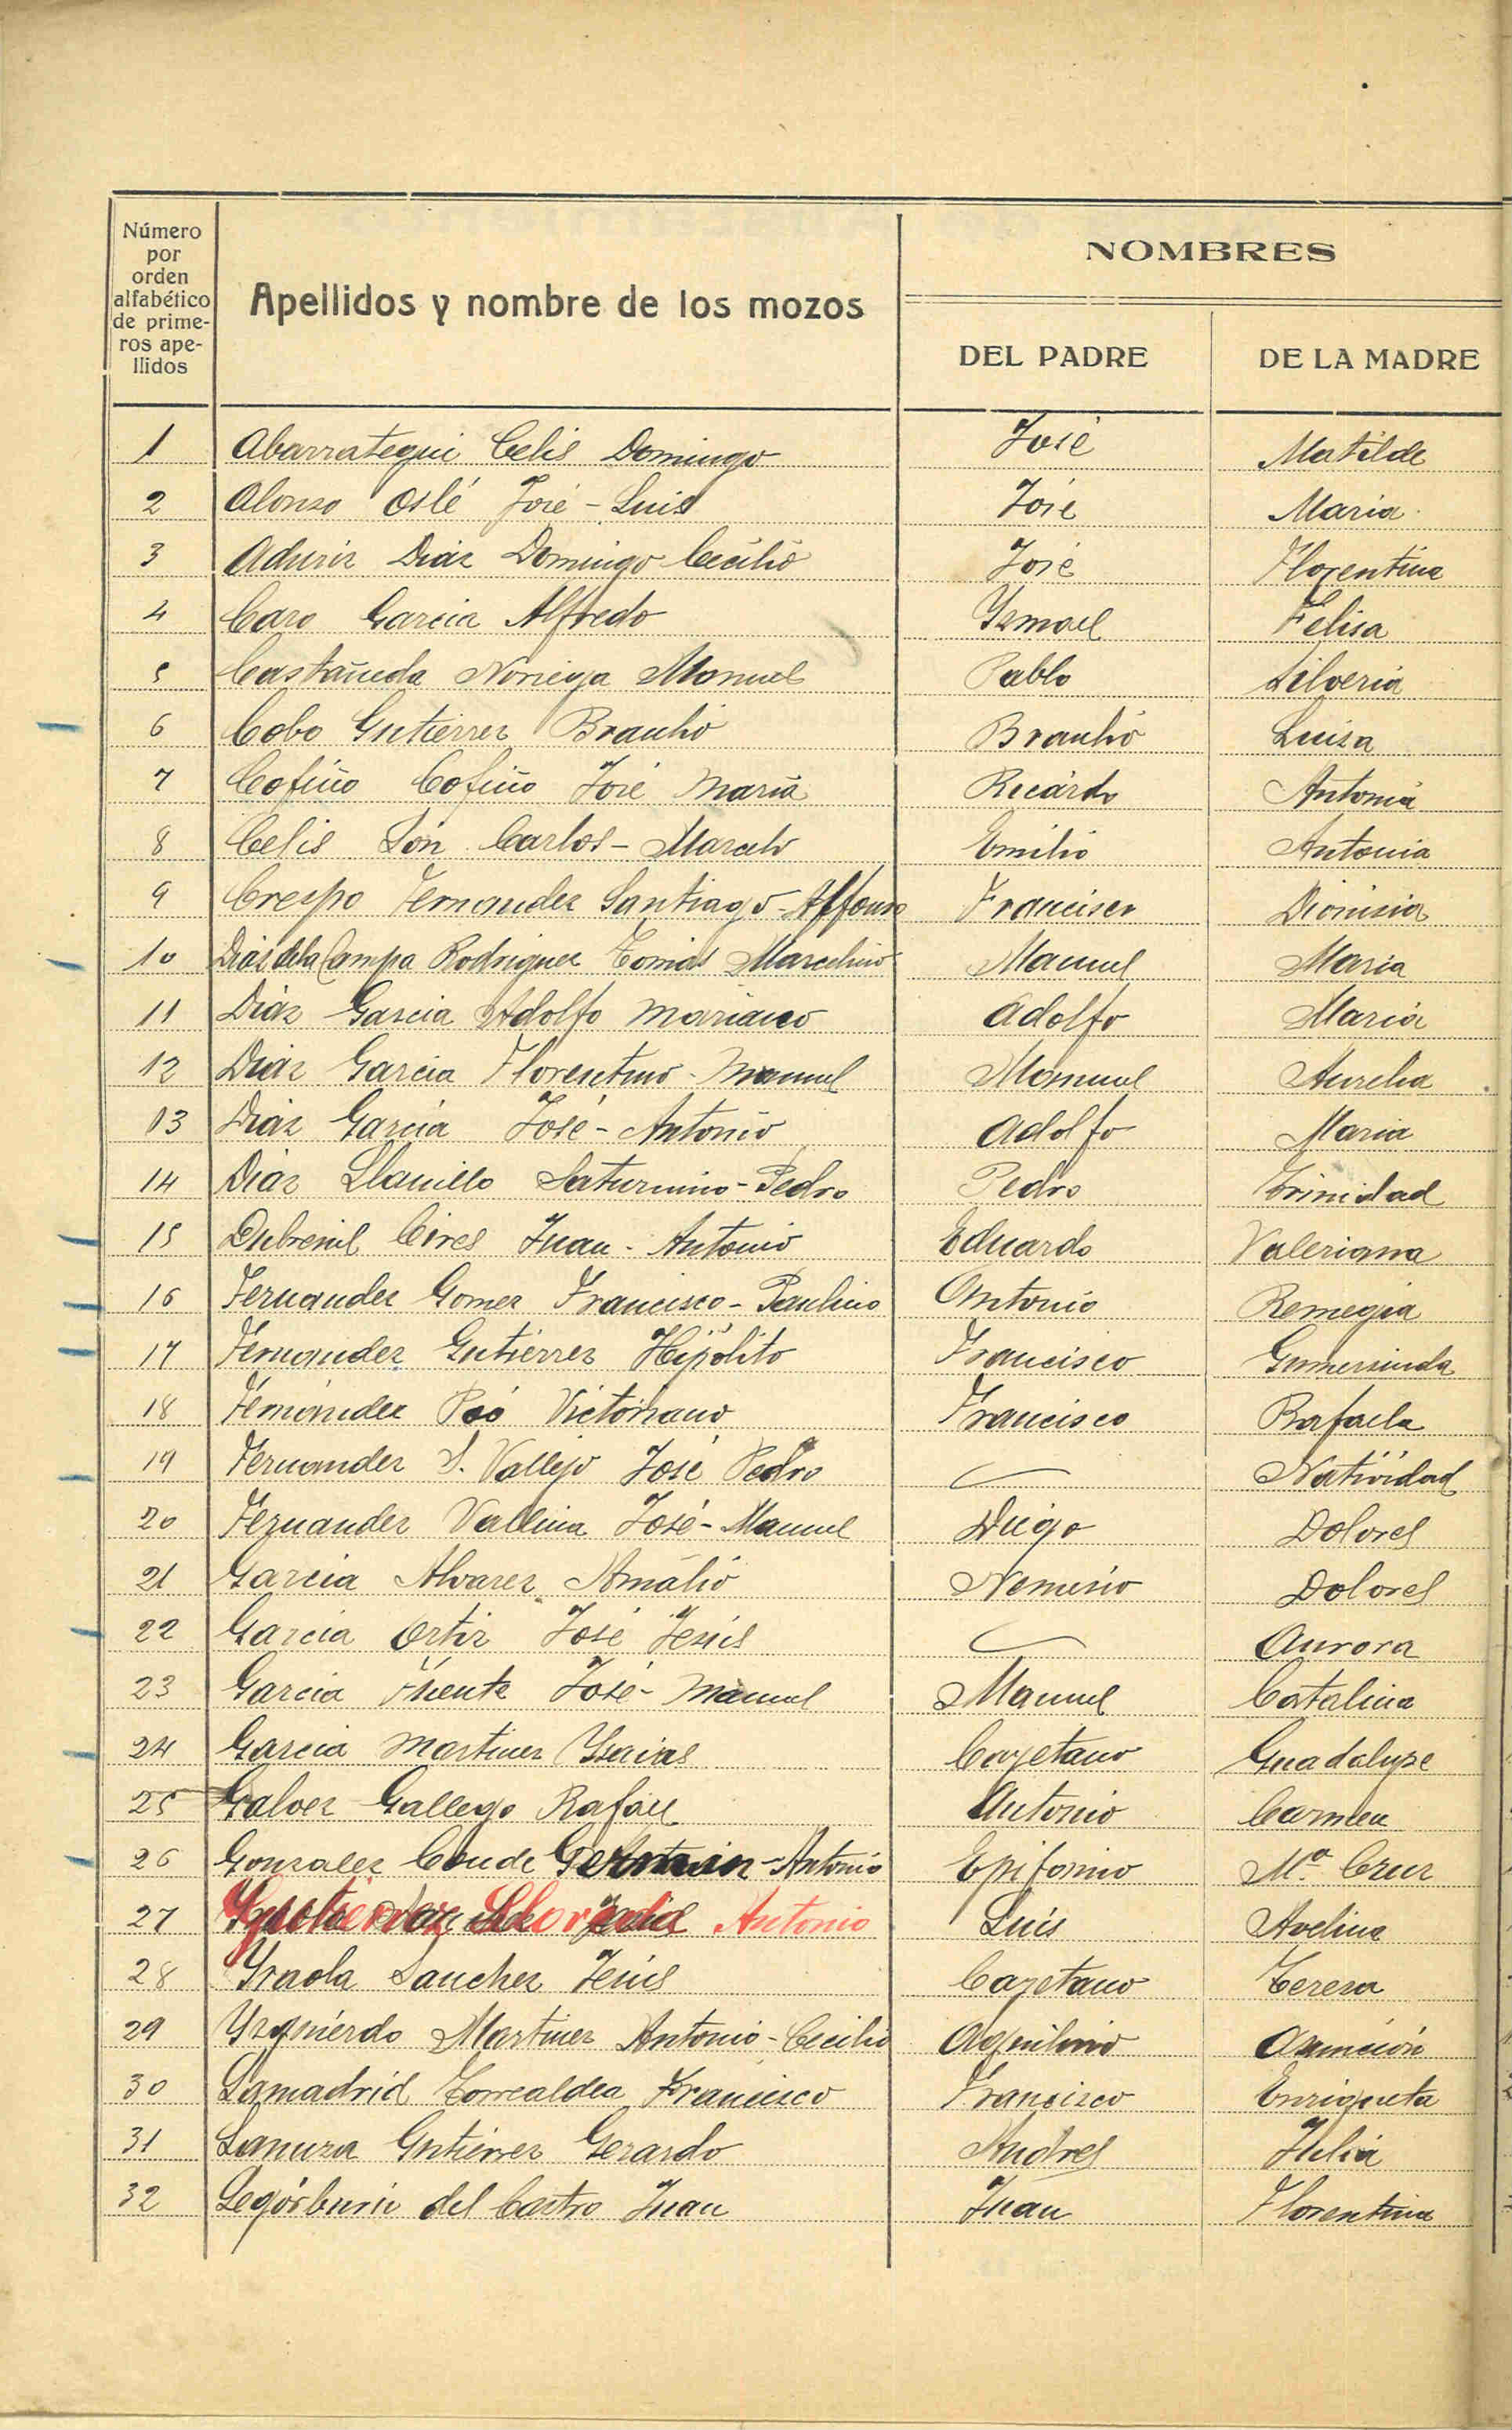 Número por orden alfabético de primeros apellidos | Apellidos y nombre de los mozos | NOMBRES
DEL PADRE | DE LA MADRE
1 Abarrategui Celis Domingo José Matilde
2 Alonso Oslé José - Luis José Maria
3 Aduriz Diáz Domingo Cecilio José Florentina
4 Caro Garcia Alfredo Ysmael Felisa
5 Castañeda Noriega Manuel Pablo Silveria
6 Cobo Gutierrez Braulio Braulio Luisa
7 Cofiño Cofiño José Maria Ricardo Antonia
8 Celis Son Carlos - Marcelo Emilio Antonia
9 Crespo Fernandez Santiago - Alfonso Francisco Dionisia
10 Diáz de la Campa Rodriguez Tomás Marcelino Manuel Maria
11 Diáz Garcia Adolfo Mariano Adolfo Maria
12 Diáz Garcia Florentino - Manuel Manuel Aurelia
13 Diáz Garcia José - Antonio Adolfo Maria
14 Diáz Llanillo Saturnino - Pedro Pedro Trinidad
15 Dubreuil Cires Juan - Antonio Eduardo Valeriana
16 Fernandez Gomez Francisco - Paulino Antonio Remegia
17 Fernandez Gutierrez Hipólito Francisco Gumersinda
18 Fernández Poó Victoriano Francisco Rafaela
19 Fernandez S. Vallejo José Pedro Natividad
20 Fernandez Vallina José - Manuel Diego Dolores
21 Garcia Alvarez Amalio Nemesio Dolores
22 Garcia Ortiz José Jesús Aurora
23 Garcia Fuente José - Manuel Manuel Catalina
24 Garcia Martinez Ysaias Cayetano Guadalupe
25 Galvez Gallego Rafael Antonio Carmen
26 Gonzalez Conde German - Antonio Epifanio Mª Cruz
27 Antonio Luis Avelina
28 Yraola Sanchez Jesús Cayetano Teresa
29 Yzquierdo Martinez Antonio - Cecilio Aquilino Asunción
30 Lamadrid Torrealdea Francisco Francisco Enriqueta
31 Lanuza Gutierrez Gerardo Andres Julia
32 Legórburu del Castro Juan Juan Florentina